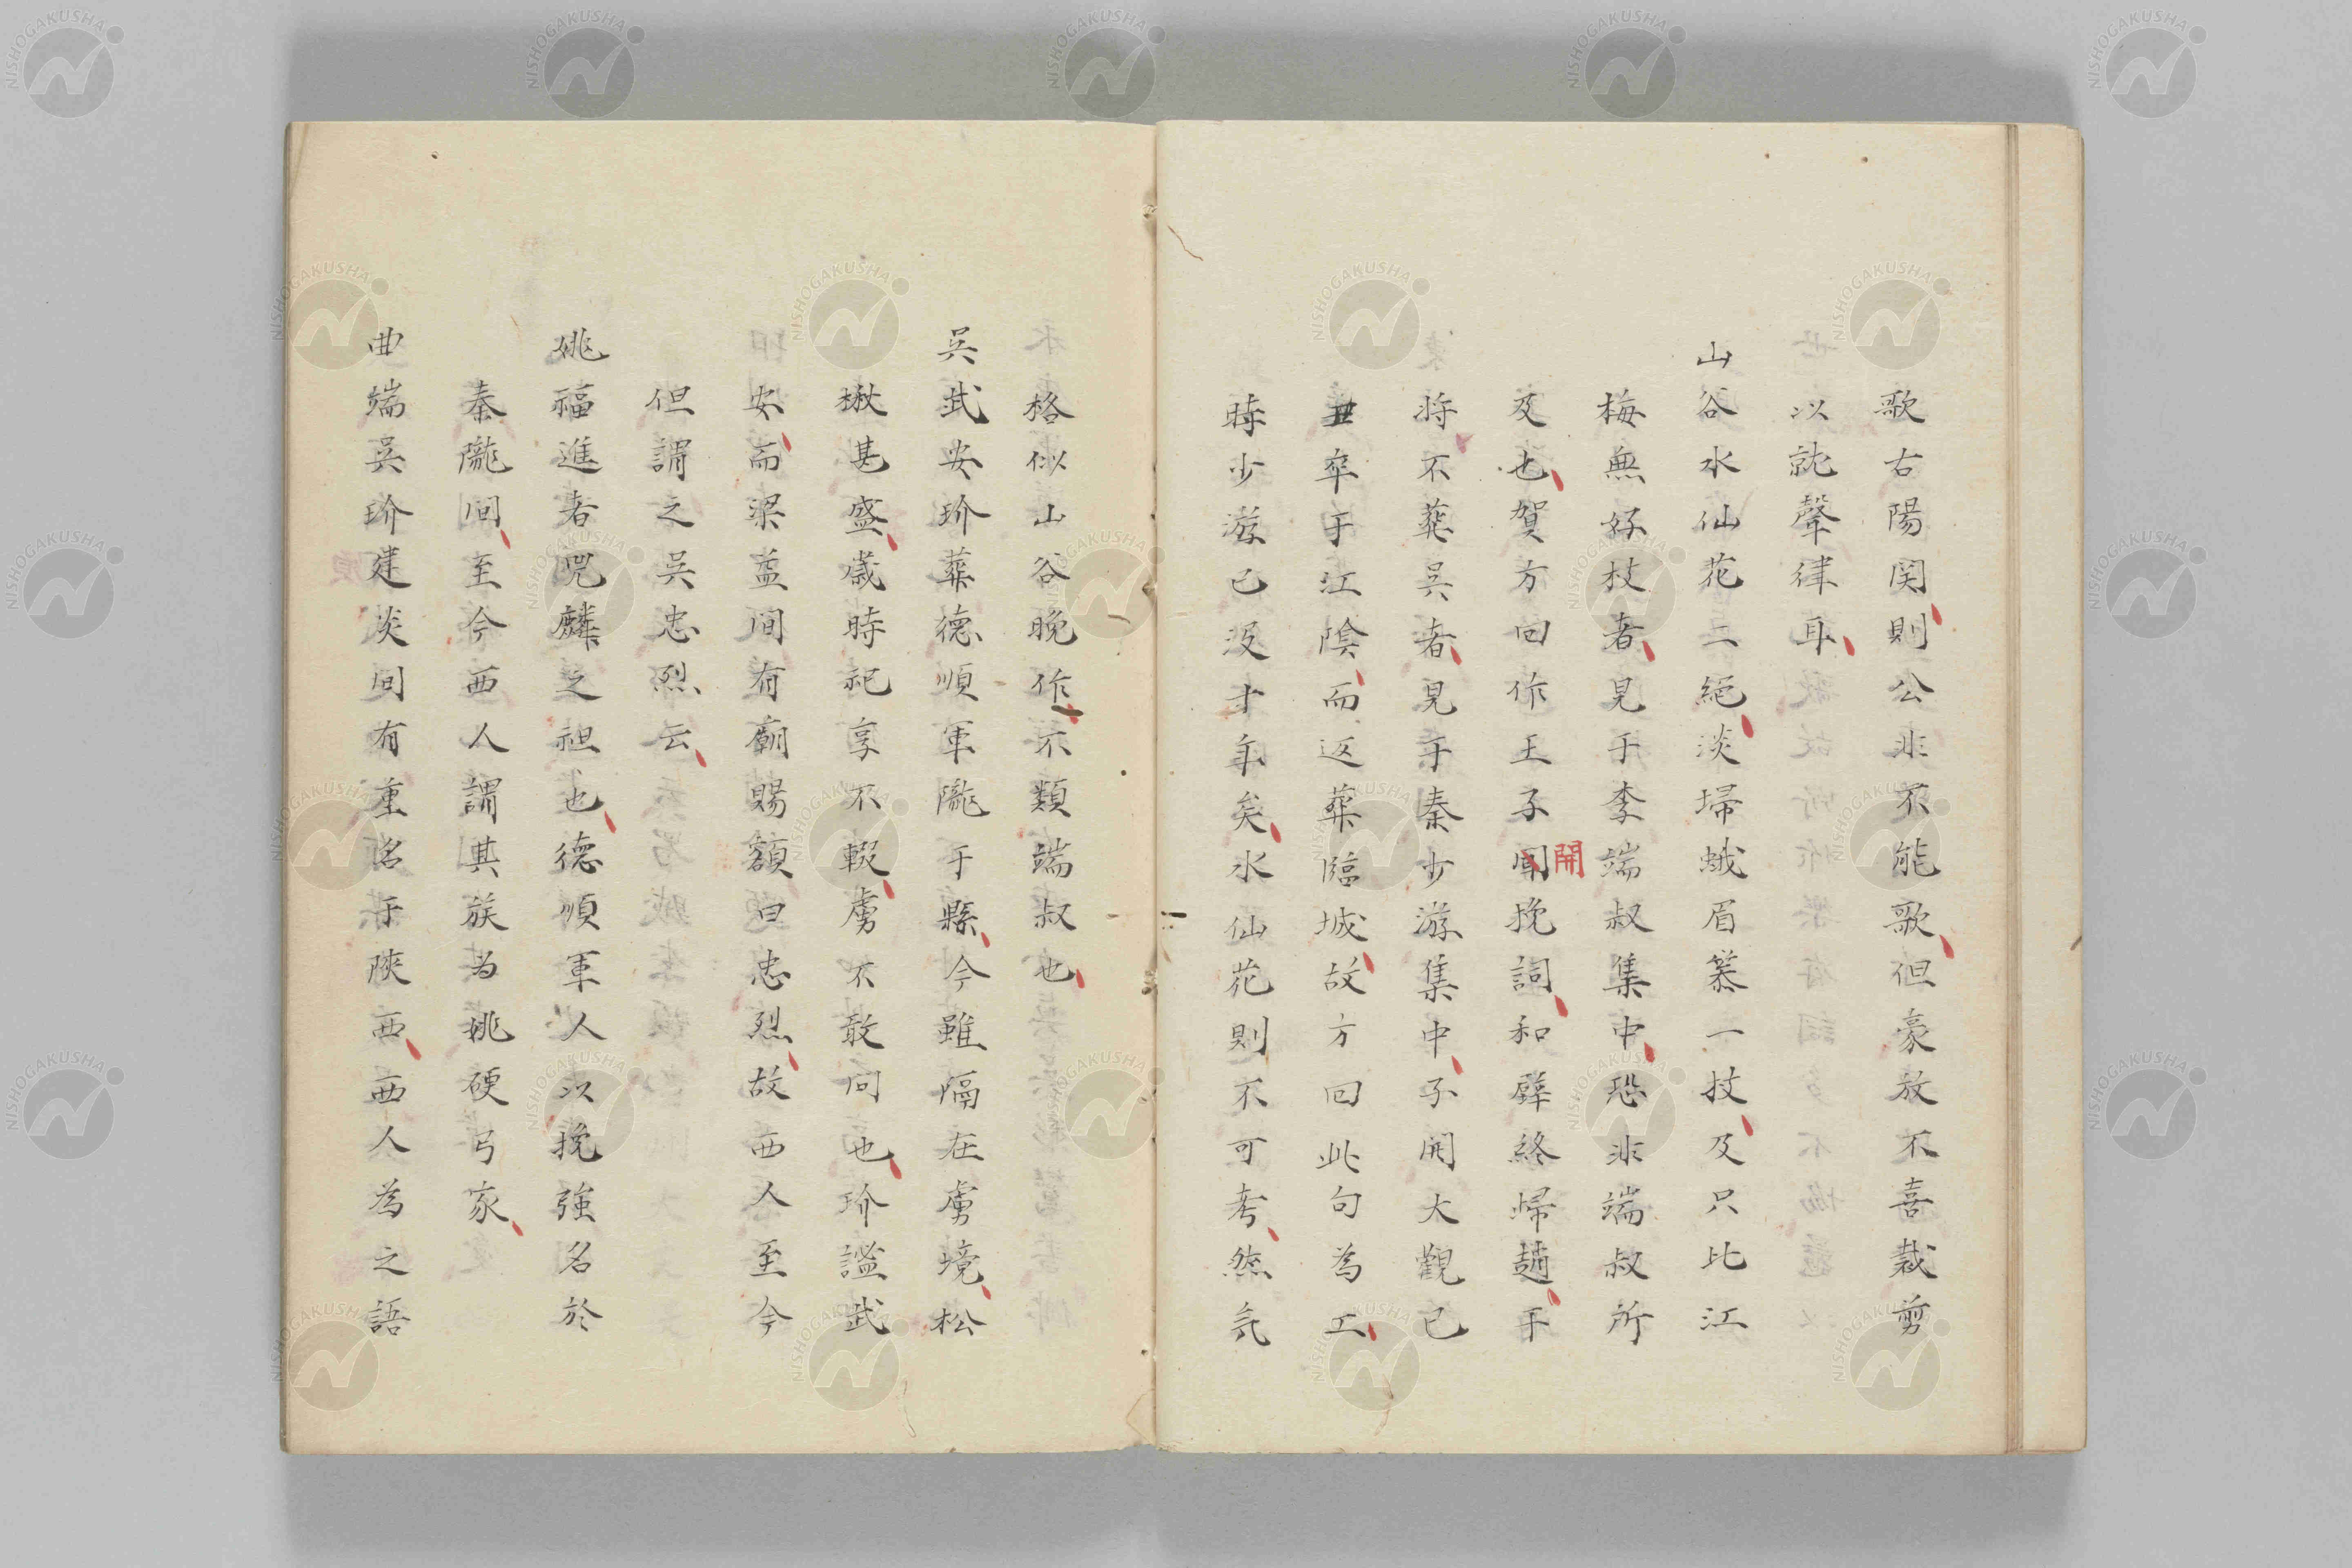 歌右陽関則公非不能歌但豪放不喜裁剪
以就聲律耳
山谷水仙花二絕淡埽蛾眉篸一枝及只比江
梅無好枝者見于李端叔集中恐非端叔所
及也賀方回作王子開挽詞和璧終歸趙干
将不葬吳者見于秦少游集中子開大觀已
丑卒于江陰而返葬臨城故方回此句為工
時少游已没十年矣水仙花則不可考然氣
格似山谷晚作不類端叔也
吳武安玠葬德順軍隴干縣今雖隔在虜境松
楸甚盛歲時祀享不輟虜不敢問也玠謚武
安而梁益間有廟賜額曰忠烈故西人至今
但謂之吳忠烈云
姚福進者兕麟之祖也德順軍人以挽強名於
秦隴間至今西人謂其族為姚硬弓家
曲端吳玠建炎間有重名于陝西西人為之語
NISHOGAKUSHA